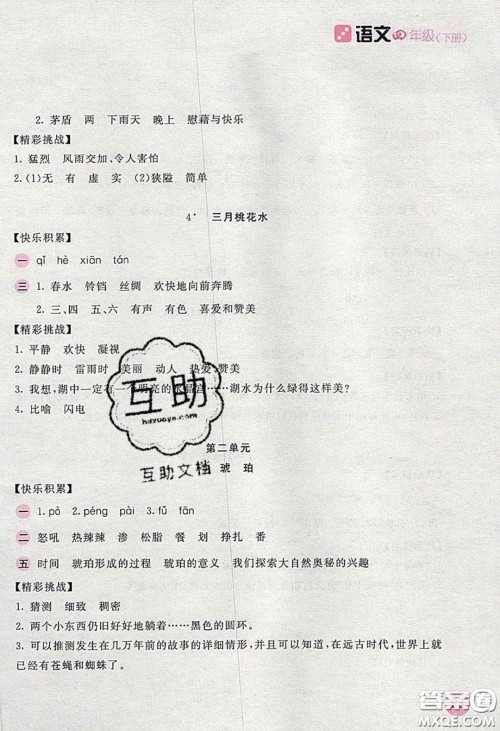 语文四年级(下册)
2. 茅盾 两 下雨天 晚上 慰藉与快乐
【精彩挑战】
1. 猛烈 风雨交加、令人害怕
2. (1)无 有 虚 实 (2)狭隘 简单
4* 三月桃花水
【快乐积累】
一 qǐ hè xiān tán
三 1. 春水 铃铛 丝绸 欢快地向前奔腾
2. 三、四 五、六 有声 有色 喜爱和赞美
【精彩挑战】
1. 平静 欢快 凝视
2. 静静时 雷雨时 美丽 动人 热爱、赞美
3. 我想,湖中一定有一个明亮的水晶宫……湖水为什么绿得这样美?
4. 比喻 闪电
互助
hdzuoye.com
互助文档
第二单元
琥珀
【快乐积累】
一 1. pò 2. péng pài 3. fǔ fān
二 怒吼 热辣辣 渗 松脂 餐 划 挣扎 番
五 时间 琥珀形成的过程 琥珀的意义 我们探索大自然奥秘的兴趣
【精彩挑战】
1. 猜测 细致 稠密
2. 两个小东西仍旧好好地躺着……黑色的圆环。
3. 可以推测发生在几万年前的故事的详细情形,并且可以知道,在远古时代,世界上就
已经有苍蝇和蜘蛛了。
答案圈
MXQE.COM